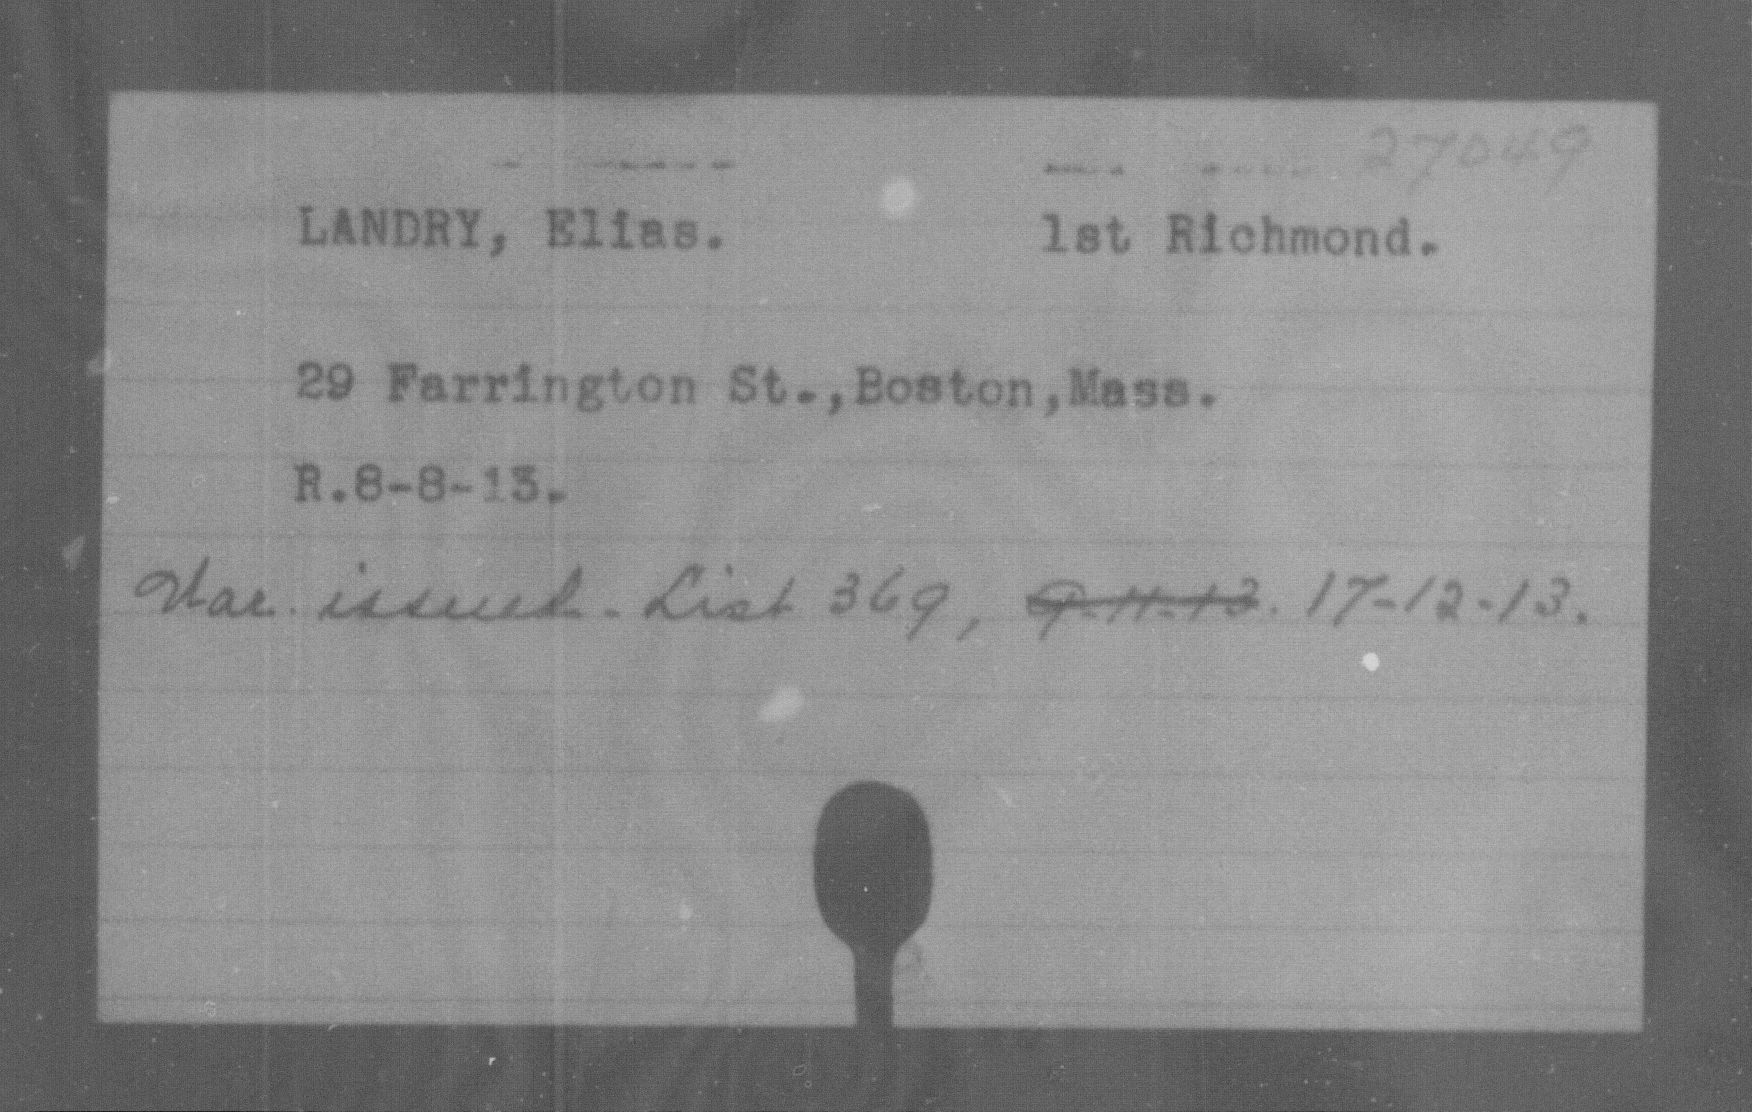 27049
LANDRY, Elias. 1st Richmond.
29 Farrington St.,Boston,Mass.
R.8-8-13.
War. issued - List 369, 9-11-13. 17-12-13.